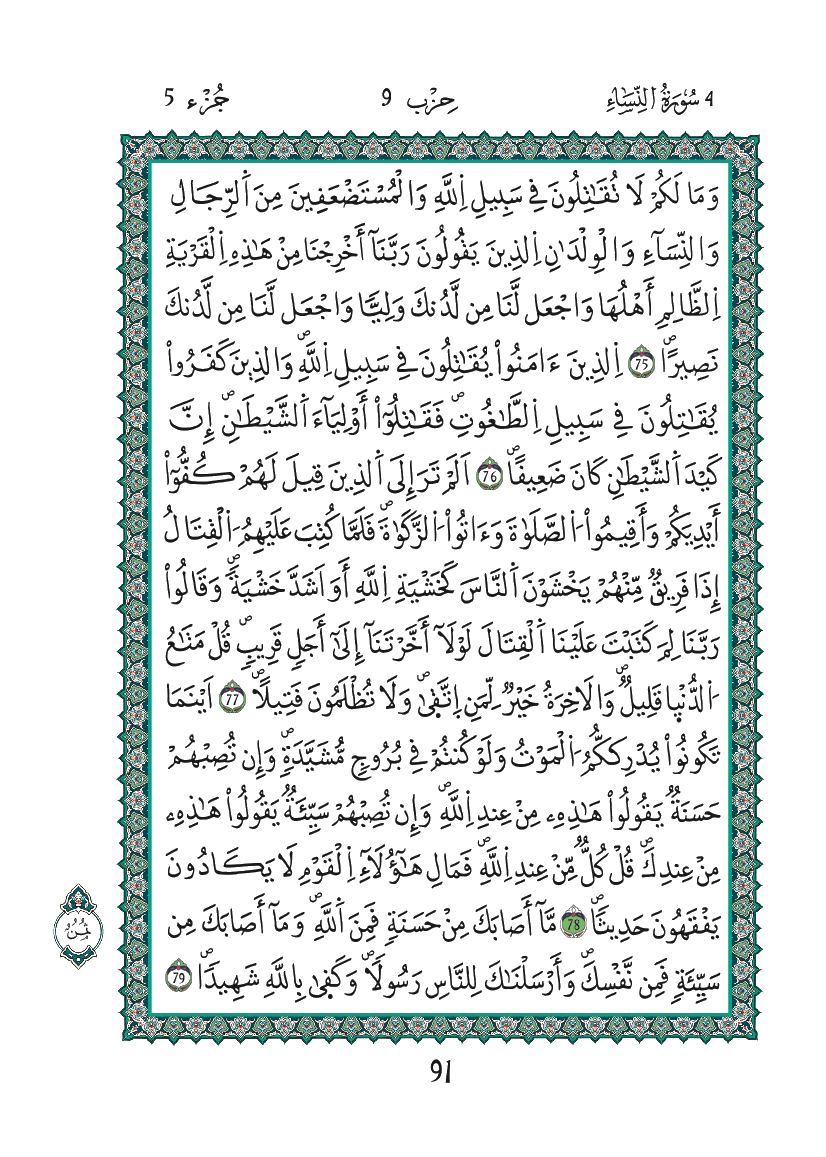 4 سُورَةُ النِّسَاءِ حِزْب 9 جُزْء 5
وَمَا لَكُمْ لَا تُقَٰتِلُونَ فِے سَبِيلِ اِ۬للَّهِ وَالْمُسْتَضْعَفِينَ مِنَ اَ۬لرِّجَالِ
وَالنِّسَآءِ وَالْوِلْدَٰنِ اِ۬لذِينَ يَقُولُونَ رَبَّنَآ أَخْرِجْنَا مِنْ هَٰذِهِ اِ۬لْقَرْيَةِ
اِ۬لظَّالِمِ أَهْلُهَا وَاجْعَل لَّنَا مِن لَّدُنكَ وَلِيّاٗ وَاجْعَل لَّنَا مِن لَّدُنكَ
نَصِيراًۖ 75 اِ۬لذِينَ ءَامَنُواْ يُقَٰتِلُونَ فِے سَبِيلِ اِ۬للَّهِۖ وَالذِينَ كَفَرُواْ
يُقَٰتِلُونَ فِے سَبِيلِ اِ۬لطَّٰغُوتِۖ فَقَٰتِلُوٓاْ أَوْلِيَآءَ اَ۬لشَّيْطَٰنِۖ إِنَّ
كَيْدَ اَ۬لشَّيْطَٰنِ كَانَ ضَعِيفاًۖ 76 اَلَمْ تَرَ إِلَى اَ۬لذِينَ قِيلَ لَهُمْ كُفُّوٓاْ
أَيْدِيَكُمْ وَأَقِيمُواْ اُ۬لصَّلَوٰةَ وَءَاتُواْ اُ۬لزَّكَوٰةَۖ فَلَمَّا كُتِبَ عَلَيْهِمُ اُ۬لْقِتَالُ
إِذَا فَرِيقٞ مِّنْهُمْ يَخْشَوْنَ اَ۬لنَّاسَ كَخَشْيَةِ اِ۬للَّهِ أَوَ اَشَدَّ خَشْيَةٗۖ وَقَالُواْ
رَبَّنَا لِمَ كَتَبْتَ عَلَيْنَا اَ۬لْقِتَالَ لَوْلَآ أَخَّرْتَنَآ إِلَىٰٓ أَجَلٖ قَرِيبٖۖ قُلْ مَتَٰعُ
اُ۬لدُّنْي۪ا قَلِيلٞۖ وَالَاخِرَةُ خَيْرٞ لِّمَنِ اِ۪تَّق۪يٰۖ وَلَا تُظْلَمُونَ فَتِيلاًۖ 77 اَيْنَمَا
تَكُونُواْ يُدْرِككُّمُ اُ۬لْمَوْتُ وَلَوْ كُنتُمْ فِے بُرُوجٖ مُّشَيَّدَةٖۖ وَإِن تُصِبْهُمْ
حَسَنَةٞ يَقُولُواْ هَٰذِهِۦ مِنْ عِندِ اِ۬للَّهِۖ وَإِن تُصِبْهُمْ سَيِّئَةٞ يَقُولُواْ هَٰذِهِۦ
مِنْ عِندِكَۖ قُلْ كُلّٞ مِّنْ عِندِ اِ۬للَّهِۖ فَمَالِ هَٰٓؤُلَآءِ اِ۬لْقَوْمِ لَا يَكَادُونَ
يَفْقَهُونَ حَدِيثاٗۖ 78 مَّآ أَصَابَكَ مِنْ حَسَنَةٖ فَمِنَ اَ۬للَّهِۖ وَمَآ أَصَابَكَ مِن
سَيِّئَةٖ فَمِن نَّفْسِكَۖ وَأَرْسَلْنَٰكَ لِلنَّاسِ رَسُولاٗۖ وَكَف۪يٰ بِاللَّهِ شَهِيداٗۖ 79
ثُمُنُ
91